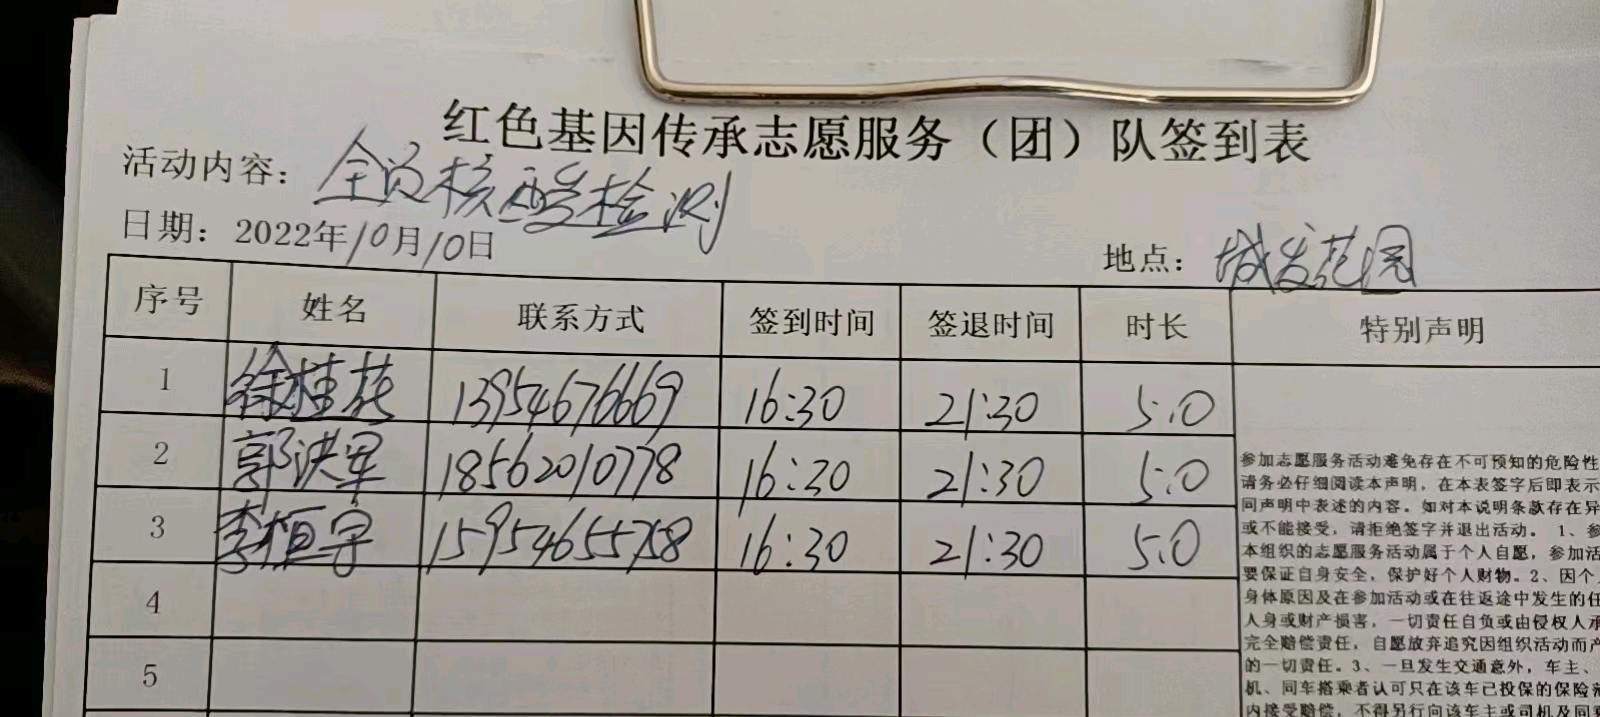 红色基因传承志愿服务（团）队签到表
活动内容：全员核酸检测
日期：2022年10月10日
地点：城发花园
序号 姓名 联系方式 签到时间 签退时间 时长 特别声明
1 徐桂花 13954676669 16:30 21:30 5.0
2 郭洪军 18562010778 16:30 21:30 5.0
3 李桓宇 15954655758 16:30 21:30 5.0
4
5
参加志愿服务活动难免存在不可预知的危险性
请务必仔细阅读本声明，在本表签字后即表示
同声明中表述的内容。如对本说明条款存在异
或不能接受，请拒绝签字并退出活动。 1、参
本组织的志愿服务活动属于个人自愿，参加活
要保证自身安全，保护好个人财物。2、因个
身体原因及在参加活动或在往返途中发生的任
人身或财产损害，一切责任自负或由侵权人承
完全赔偿责任，自愿放弃追究因组织活动而产
的一切责任。3、一旦发生交通意外，车主、
机、同车搭乘者认可只在该车已投保的保险范
内接受赔偿，不得另行向该车主或司机及同乘